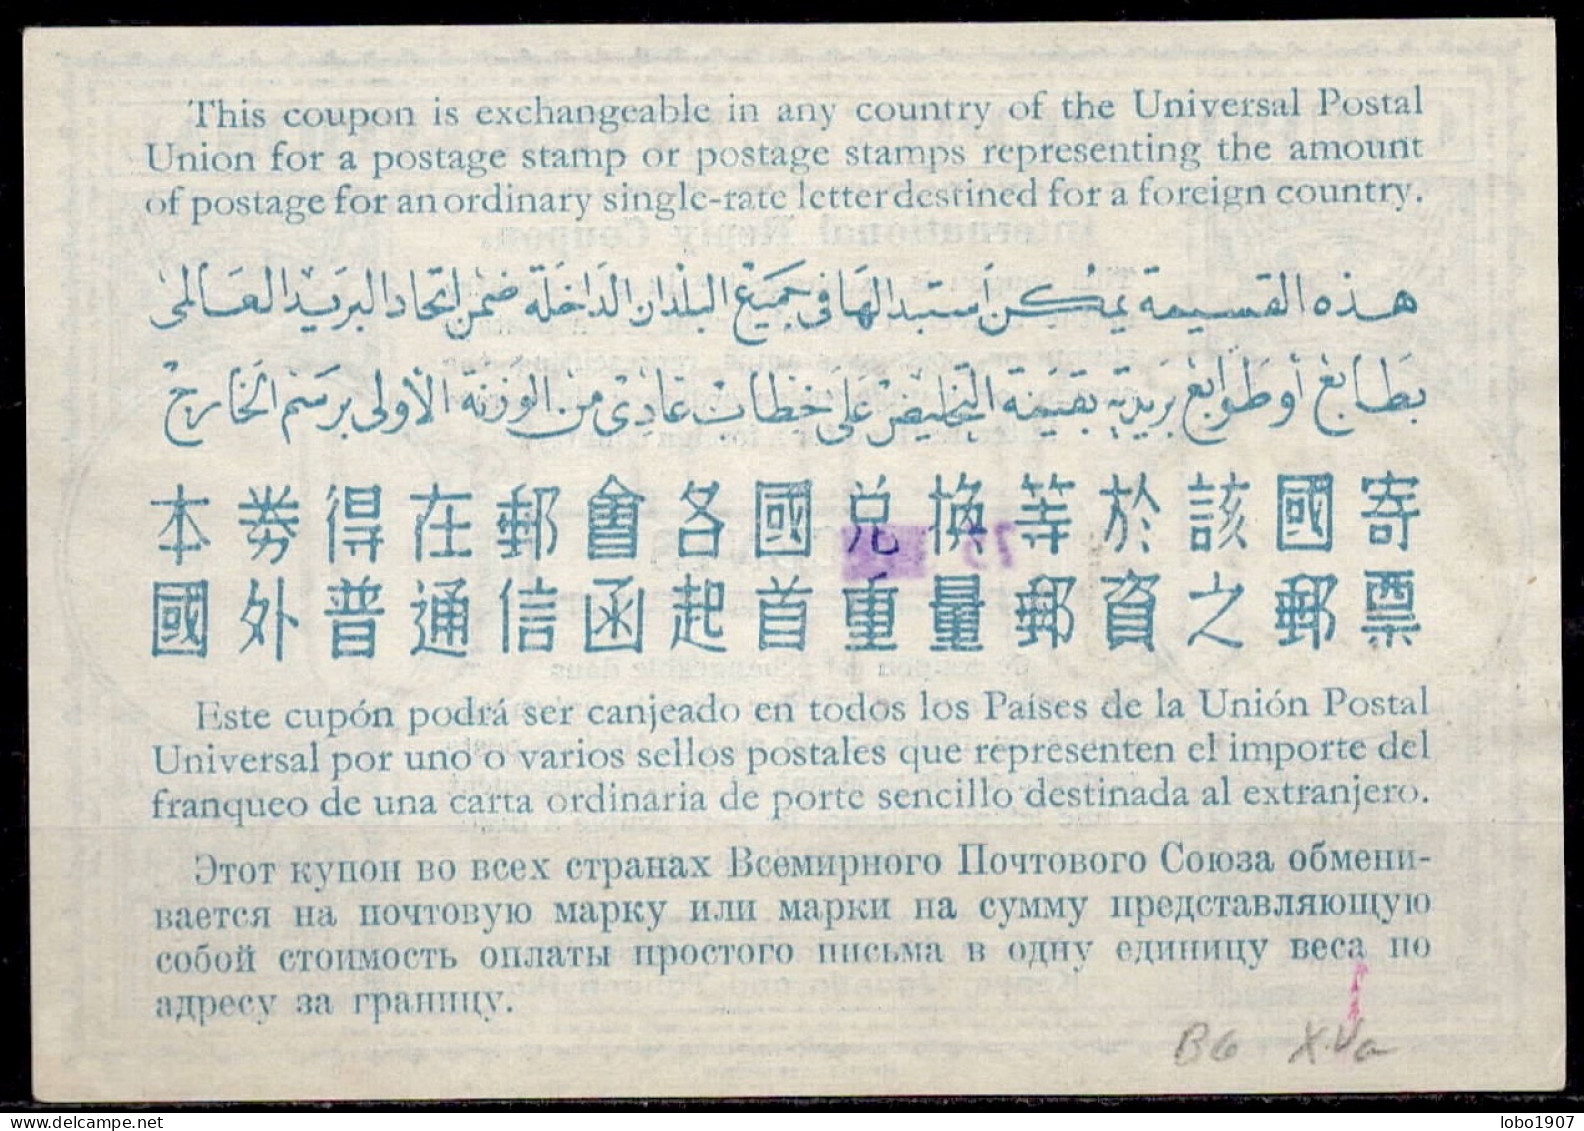 This coupon is exchangeable in any country of the Universal Postal
Union for a postage stamp or postage stamps representing the amount
of postage for an ordinary single-rate letter destined for a foreign country.
هذه القسيمة يمكن استبدالها في جميع البلدان الداخلة ضمن اتحاد البريد العالمى
بطابع أو طوابع بريدية بقيمة التخليص على خطاب عادى من الوزنة الأولى برسم الخارج
本券得在郵會各國兌換等於該國寄
國外普通信函起首重量郵資之郵票
75
Este cupón podrá ser canjeado en todos los Países de la Unión Postal
Universal por uno o varios sellos postales que representen el importe del
franqueo de una carta ordinaria de porte sencillo destinada al extranjero.
Этот купон во всех странах Всемирного Почтового Союза обмени-
вается на почтовую марку или марки на сумму представляющую
собой стоимость оплаты простого письма в одну единицу веса по
адресу за границу.
B6 X.Va
lobo1907